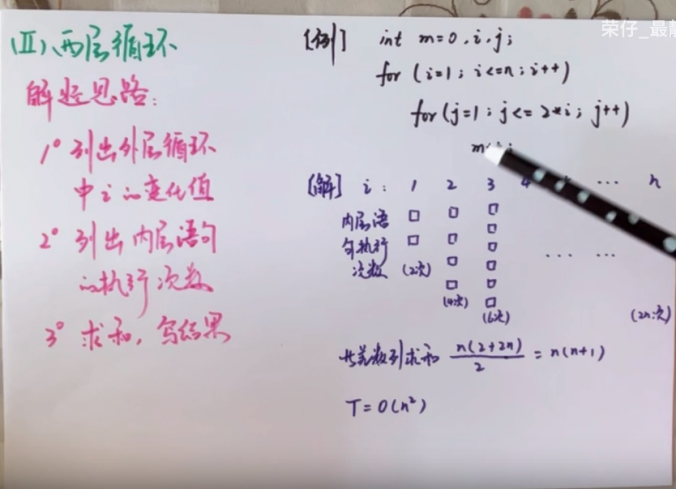 荣仔_最靓
(Ⅱ)、两层循环
解题思路:
1° 列出外层循环
中i的变化值
2° 列出内层语句
的执行次数
3° 求和,写结果
[例] int m=0,i,j;
for (i=1; i<=n; i++)
for (j=1; j<=2*i; j++)
[解] i: 1 2 3 4 ... n
内层语
句执行
次数 (2次) (4次) (6次) ... ... (2n次)
等差数列求和 n(2+2n)/2 = n(n+1)
T=O(n²)